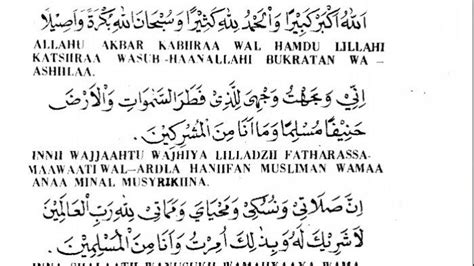 اَللّٰهُ اَكْبَرُ كَبِيْرًا وَالْحَمْدُ لِلّٰهِ كَثِيْرًا وَسُبْحَانَ اللّٰهِ بُكْرَةً وَاَصِيْلًا
ALLAHU AKBAR KABIIRAA WAL HAMDU LILLAHI
KATSIIRAA WASUB-HAANALLAHI BUKRATAN WA-
ASHIILAA.
اِنِّيْ وَجَّهْتُ وَجْهِيَ لِلَّذِيْ فَطَرَ السَّمٰوَاتِ وَالْاَرْضَ
حَنِيْفًا مُسْلِمًا وَمَا اَنَا مِنَ الْمُشْرِكِيْنَ.
INNII WAJJAAHTU WAJHIYA LILLADZII FATHARASSA-
MAAWAATI WAL-ARDLA HANIIFAN MUSLIMAN WAMAA
ANAA MINAL MUSYRIKIINA.
اِنَّ صَلَاتِيْ وَنُسُكِيْ وَمَحْيَايَ وَمَمَاتِيْ لِلّٰهِ رَبِّ الْعَالَمِيْنَ
لَا شَرِيْكَ لَهُ وَبِذٰلِكَ اُمِرْتُ وَاَنَا مِنَ الْمُسْلِمِيْنَ.